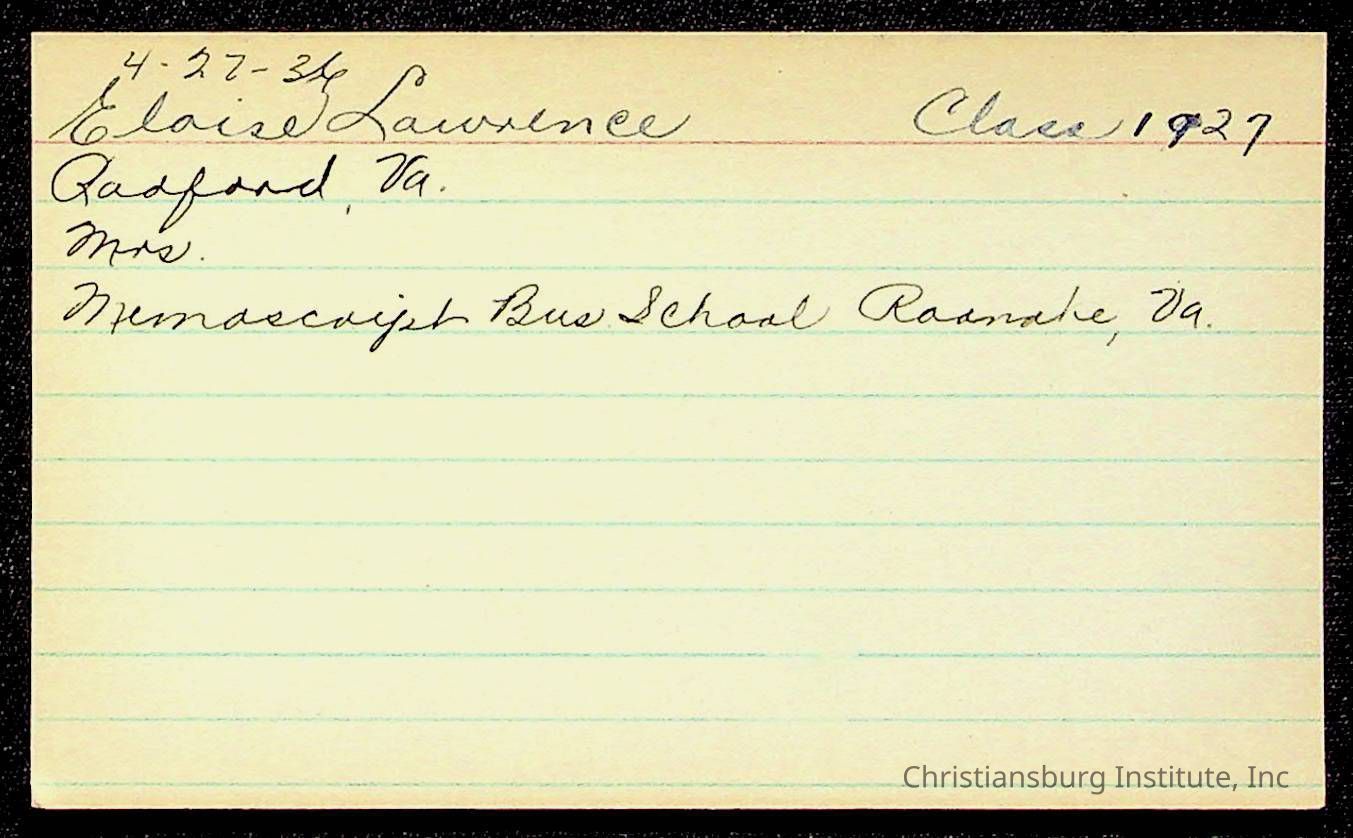 4-27-36
Eloise Lawrence Class 1927
Radford, Va.
Mrs.
Memoscript Bus. School Roanoke, Va.
Christiansburg Institute, Inc